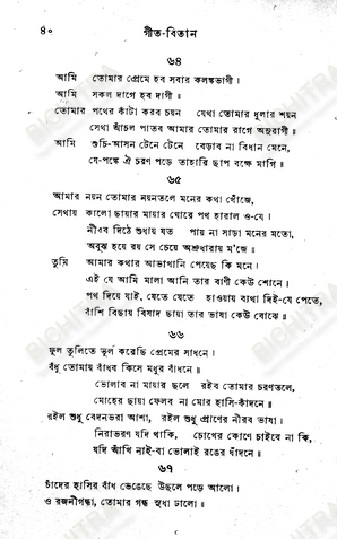 ৪০ গীত-বিতান
৬৪
আমি তোমার প্রেমে হব সবার কলঙ্কভাগী।
আমি সকল দাগে হব দাগী॥
তোমার পথের কাঁটা করব চয়ন যেথা তোমার ধূলার শয়ন
সেথা আঁচল পাতব আমার তোমার রাগে অনুরাগী॥
আমি শুচি-আসন টেনে টেনে বেড়াব না বিধান মেনে,
যে-পঙ্কে ঐ চরণ পড়ে তাহারি ছাপ বক্ষে মাগি॥
৬৫
আমার নয়ন তোমার নয়নতলে মনের কথা খোঁজে,
সেথায় কালো ছায়ার মায়ার ঘোরে পথ হারাল ও-যে।
নীরব দিঠে শুধায় যত পায় না সাড়া মনের মতো,
অবুঝ হয়ে রয় সে চেয়ে অশ্রুধারায় ম'জে॥
তুমি আমার কথার আভাখানি পেয়েছ কি মনে।
এই যে আমি মালা আনি তার বাণী কেউ শোনে।
পথ দিয়ে যাই, যেতে যেতে হাওয়ায় ব্যথা দিই-যে পেতে,
বাঁশি বিছায় বিষাদ ছায়া তার ভাষা কেউ বোঝে॥
৬৬
ফুল তুলিতে ভুল করেছি প্রেমের সাধনে।
বঁধু তোমায় বাঁধব কিসে মধুর বাঁধনে।
ভোলাব না মায়ার ছলে রইব তোমার চরণতলে,
মোহের ছায়া ফেলব না মোর হাসি-কাঁদনে॥
রইল শুধু বেদনভরা আশা, রইল শুধু প্রাণের নীরব ভাষা।
নিরাভরণ যদি থাকি, চোখের কোণে চাইবে না কি,
যদি আঁখি নাই-বা ভোলাই রঙের ধাঁদনে॥
৬৭
চাঁদের হাসির বাঁধ ভেঙেছে উছলে পড়ে আলো।
ও রজনীগন্ধা, তোমার গন্ধ সুধা ঢালো॥
BICHITRA